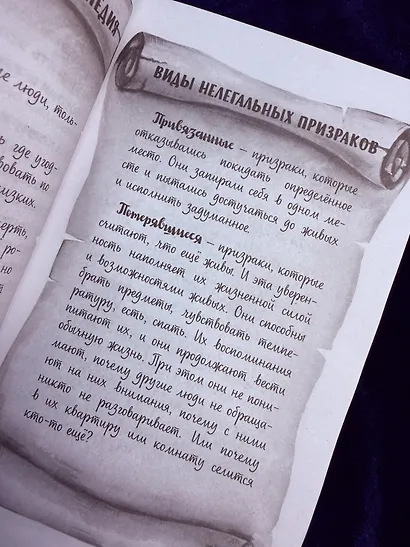 ЕДИЯ
е люди, толь-
ь где угод-
вовать по
изких.
ерть,
ро-
но
ВИДЫ НЕЛЕГАЛЬНЫХ ПРИЗРАКОВ
Привязанные – призраки, которые
отказывались покидать определённое
место. Они запирали себя в одном ме-
сте и пытались достучаться до живых
и исполнить задуманное.
Потерявшиеся – призраки, которые
считают, что ещё живы. И эта уверен-
ность наполняет их жизненной силой
и возможностями живых. Они способны
брать предметы, чувствовать темпе-
ратуру, есть, спать. Их воспоминания
питают их, и они продолжают вести
обычную жизнь. При этом они не пони-
мают, почему другие люди не обраща-
ют на них внимания, почему с ними
никто не разговаривает. Или почему
в их квартиру или комнату селится
кто-то ещё?